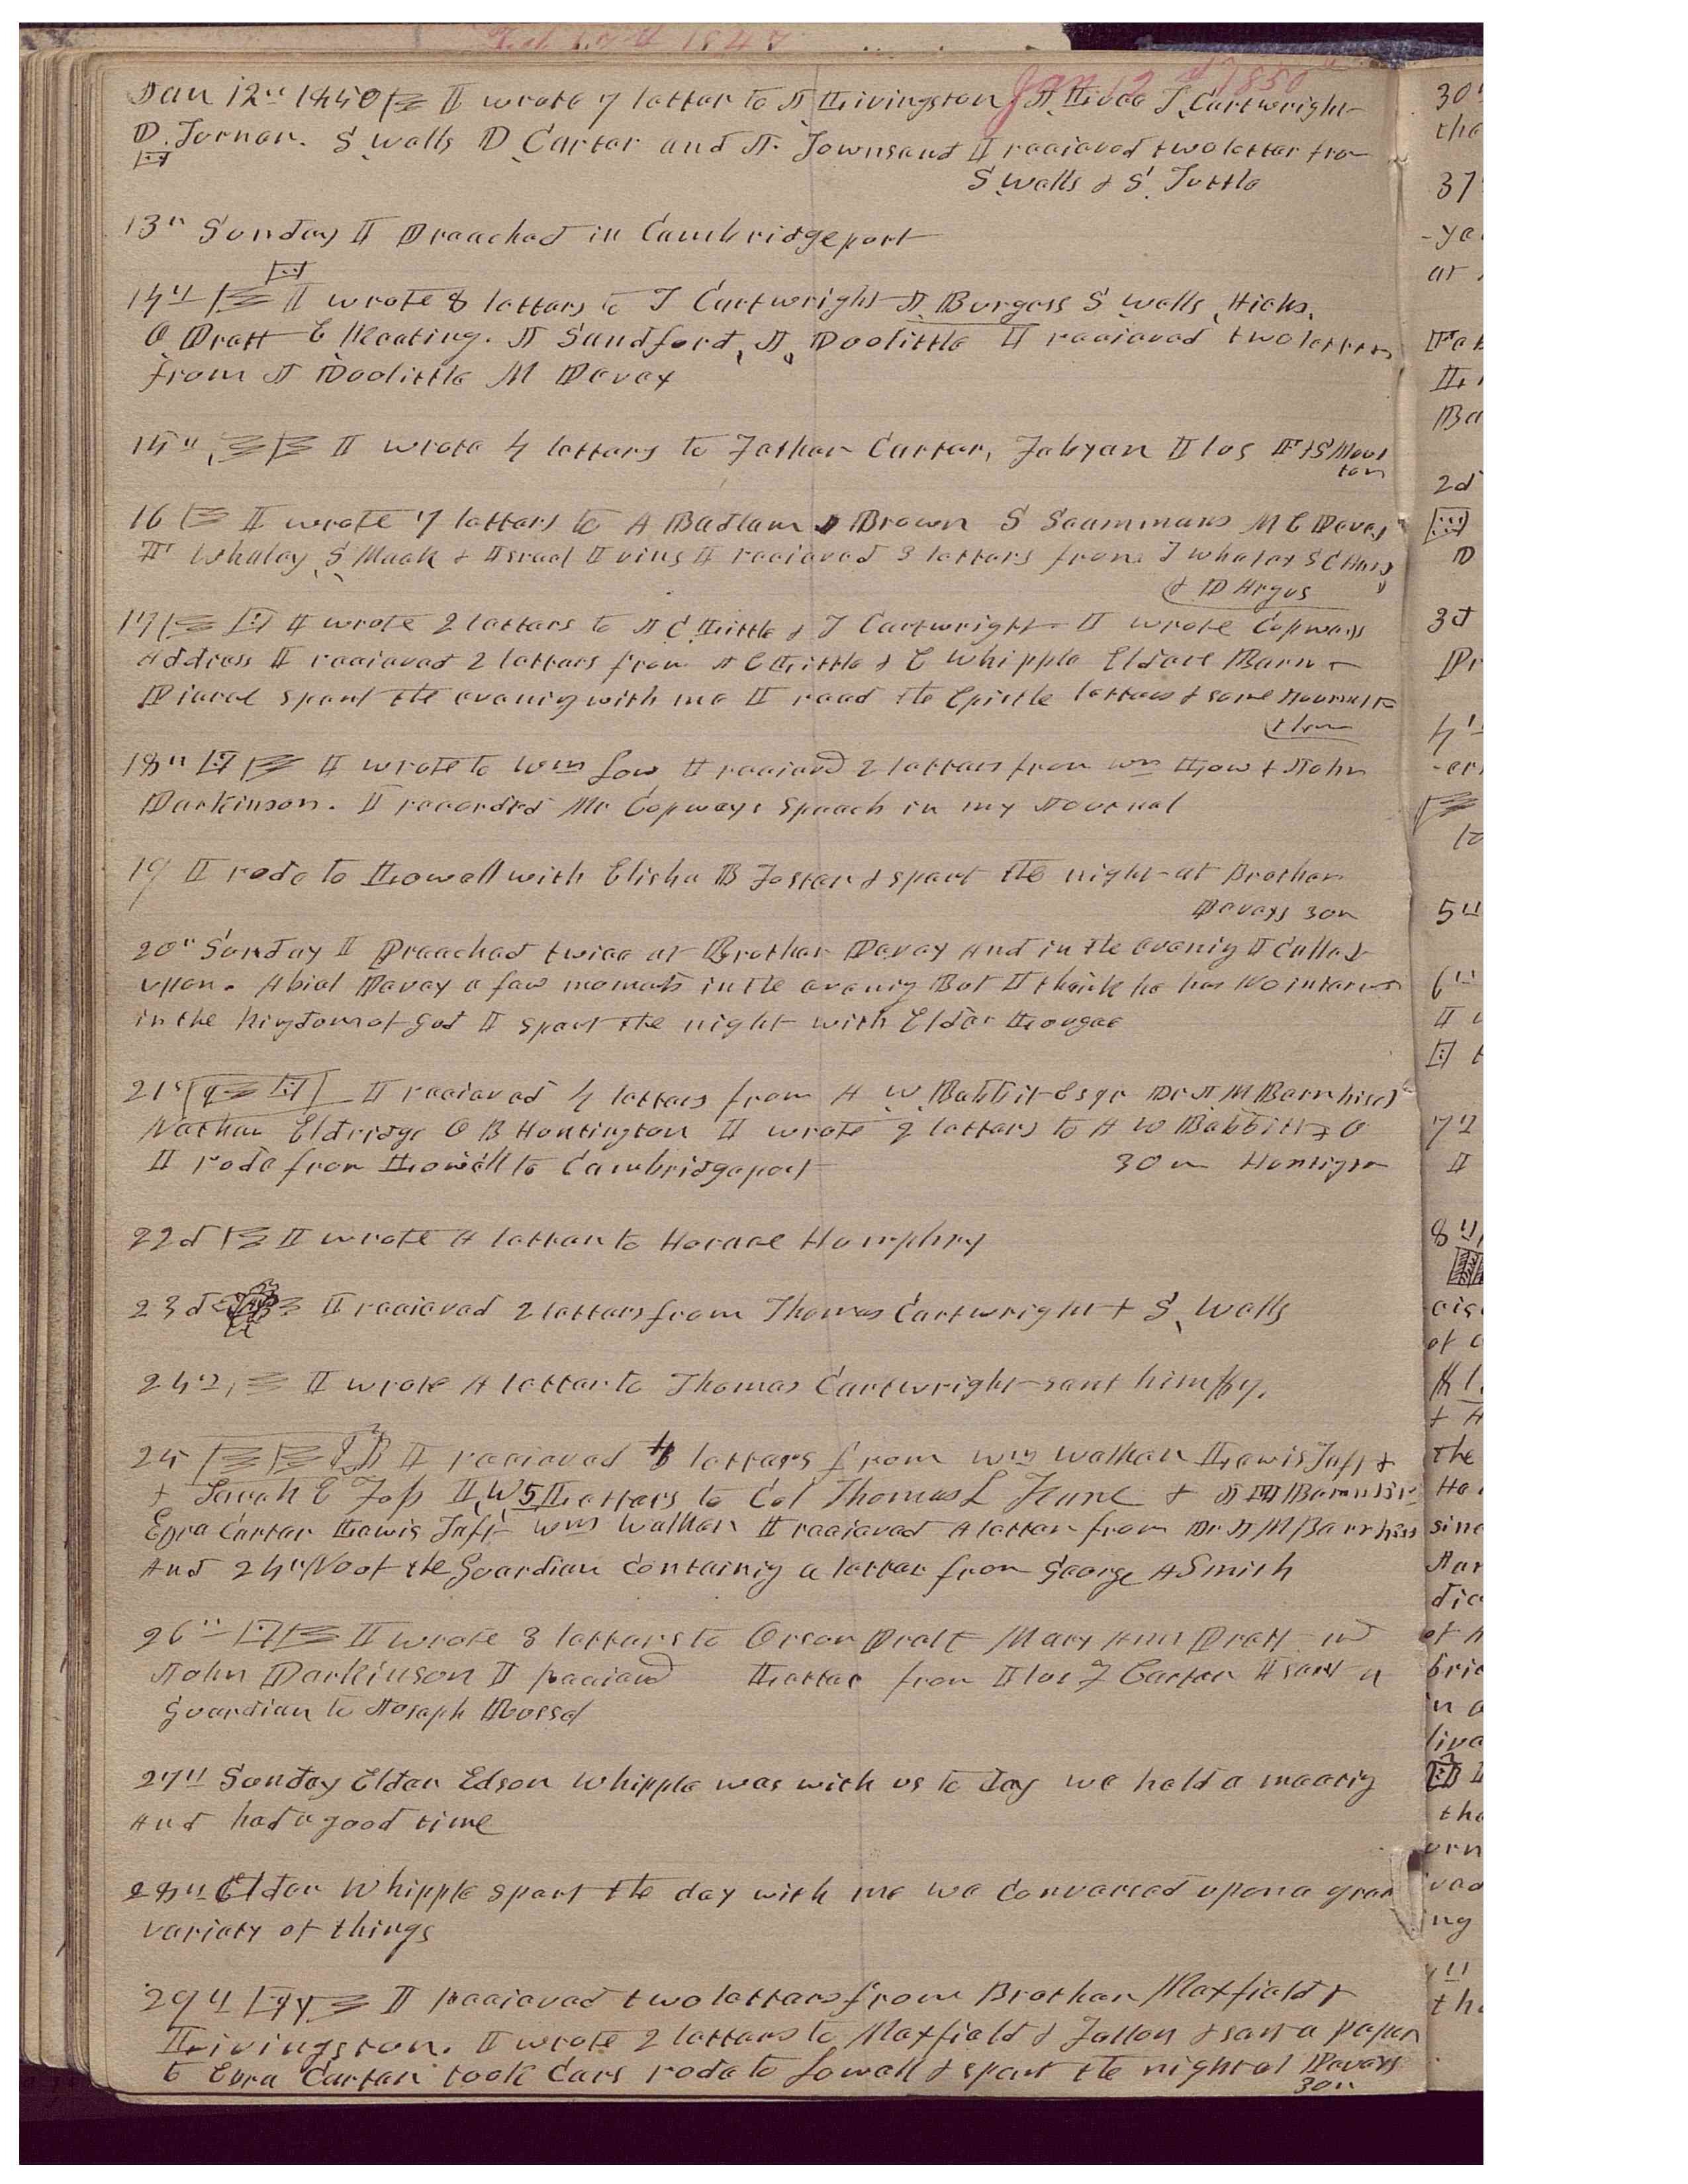 Jan 12 1850
Jan 12th 1850 I wrote 7 letter to J Livingston, T Cartwright
D. Turner. S Wells D Carter and J. Townsend I received two letter from
S Wells & S. Tuttle
13th Sunday I Preached in Cambridgeport
14th I wrote 8 letters to T Cartwright J. Burgess S Wells, Hicks,
O Pratt E Keating. J Sandford, J, Doolittle I received two letters
from J Doolittle M Davey
15th I wrote 4 letters to Father Carter, Fabyan Ilos F & S Moul
ton
16 I wrote 7 letters to A Badlam Brown S Scammans M E Davey
F Whaley S Mack & Israel Ivins I received 3 letters from
& P Argus
17 I wrote 2 letters to J C Little & T Cartwright I wrote Copways
Address I received 2 letters from J C Little & E Whipple Elders &
spent the evenig with me I read the Epistle letters & some
18th I wrote to Wm Low I received 2 letters from Wm Low & John
Parkinson. I recorded Mr Copways Speech in my Journal
19 I rode to Lowell with Elisha B Foster & spent the night at Brother
30m
20th Sunday I Preached twice at Brother Davey And in the evenig I Called
upon. Abial Davey a few moments in the evenig But I think he has No interest
in the kingdom of God I spent the night with Elder
21st I received 4 letters from A. W. Babbit Esqr Dr J M Barnhisel
Nathan Eldridge O B Huntington I wrote 2 letters to A W Babbitt & O
I rode from Lowell to Cambridgeport 30m Huntigton
22d I wrote A letter to Horace Humphry
23d I received 2 letters from Thomas Cartwright & S, Wells
24th I wrote A letter to Thomas Cartwright sent him
25 I received letters from Wm Walker Lewis Taft &
& Sarah E Foss I, W 5 Letters to Col Thomas L Kane & J M Barnhisel
Ezra Carter Lewis Taft Wm Walker I received A letter from Dr J M Barnhisel
And 24th No of the Guardian Containig a letter from George A Smith
26th I wrote 3 letters to Orson Pratt Mary Ann Pratt and
John Parkinson I received Letter from Ilos F Carter I sent a
Guardian to Joseph Russel
27th Sunday Elder Edson Whipple was with us to day we held a meetig
And had a good time
28th Elder Whipple spent the day with me we Conversed upon a great
variety of things
29th I received two letters from Brother Maxfield &
Livingston. I wrote 2 letters to Maxfield & Fallon & sent a paper
to Ezra Carter took Cars rode to Lowell & spent the night at Daveys
30m